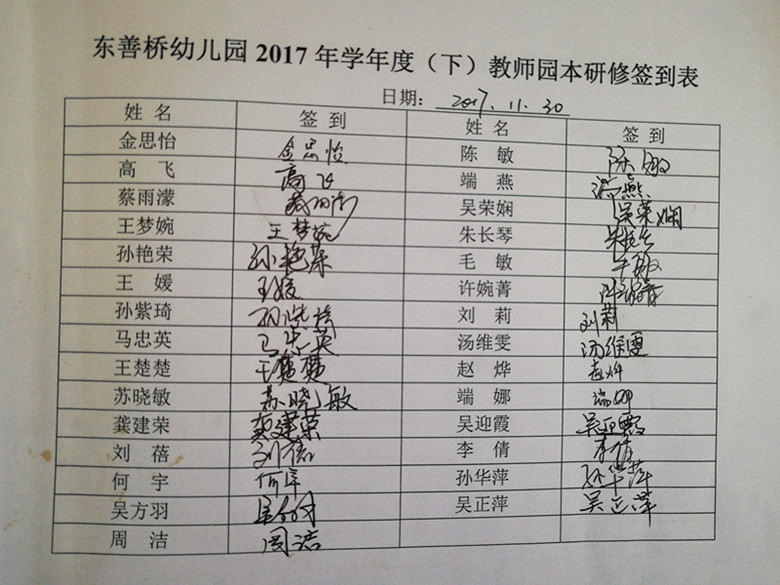 东善桥幼儿园 2017 年学年度（下）教师园本研修签到表
日期： 2017.11.30
姓 名 签 到 姓 名 签 到
金思怡 金思怡 陈 敏 陈敏
高 飞 高飞 端 燕 端燕
蔡雨濛 蔡雨濛 吴荣娴 吴荣娴
王梦婉 王梦婉 朱长琴 朱长琴
孙艳荣 孙艳荣 毛 敏 毛敏
王 媛 王媛 许婉菁 许婉菁
孙紫琦 孙紫琦 刘 莉 刘莉
马忠英 马忠英 汤维雯 汤维雯
王楚楚 王楚楚 赵 烨 赵烨
苏晓敏 苏晓敏 端 娜 端娜
龚建荣 龚建荣 吴迎霞 吴迎霞
刘 蓓 刘蓓 李 倩 李倩
何 宇 何宇 孙华萍 孙华萍
吴方羽 吴方羽 吴正萍 吴正萍
周 洁 周洁